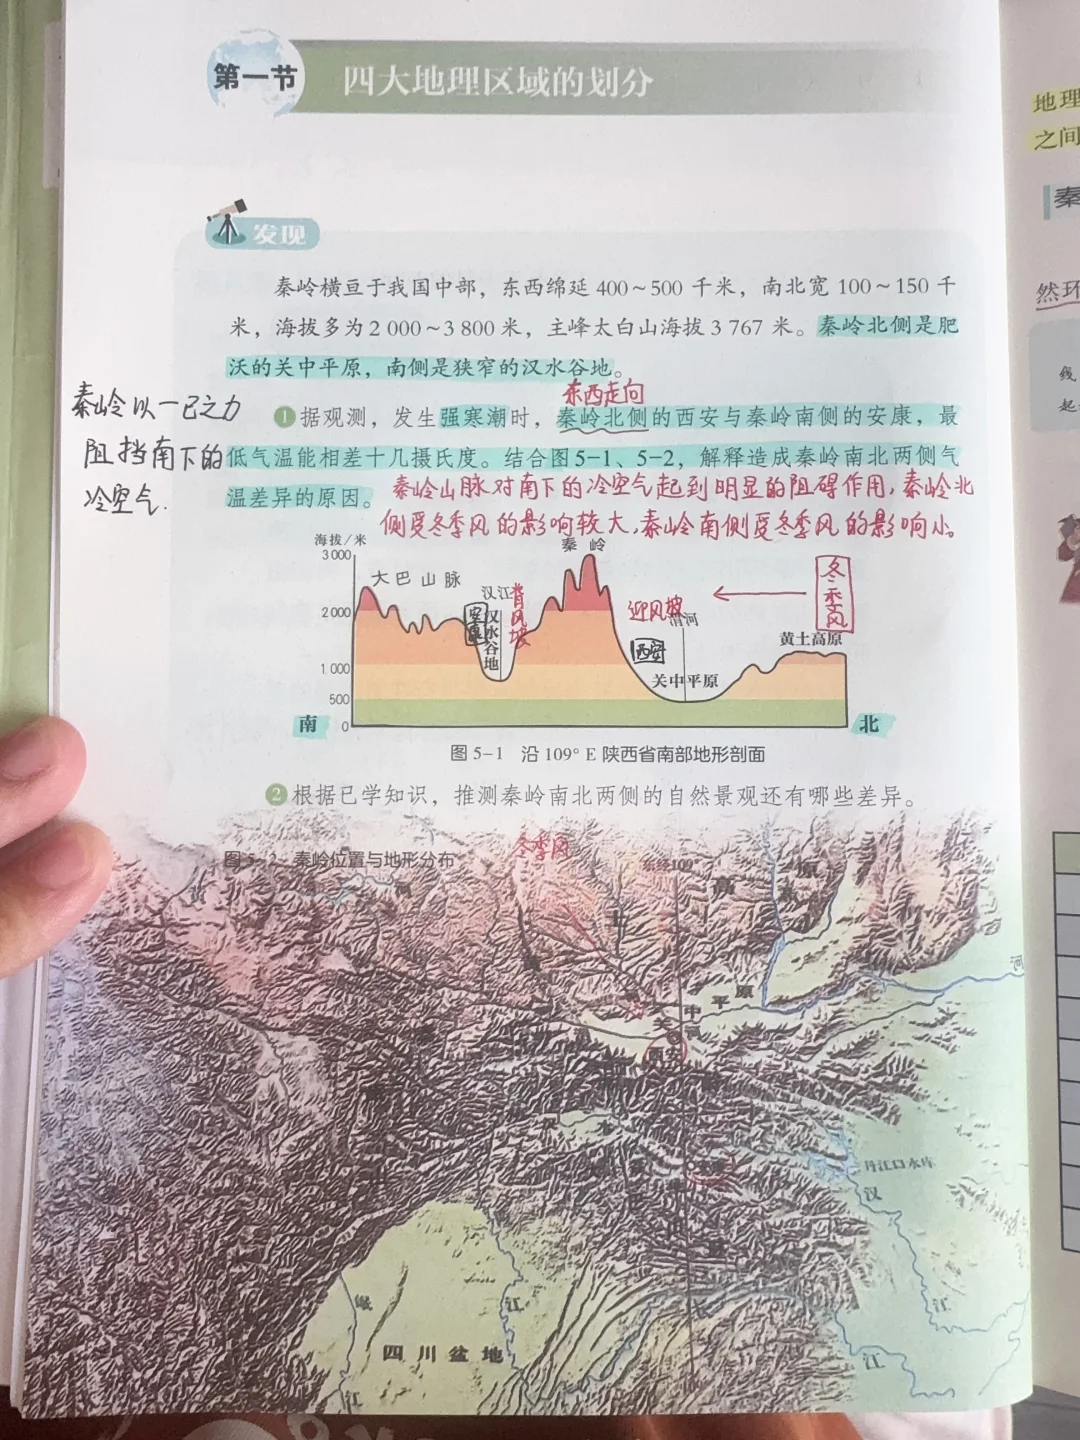 第一节
四大地理区域的划分
发现
秦岭横亘于我国中部，东西绵延 400～500 千米，南北宽 100～150 千
米，海拔多为 2 000～3 800 米，主峰太白山海拔 3 767 米。秦岭北侧是肥
沃的关中平原，南侧是狭窄的汉水谷地。
东西走向
1 据观测，发生强寒潮时，秦岭北侧的西安与秦岭南侧的安康，最
低气温能相差十几摄氏度。结合图 5-1、5-2，解释造成秦岭南北两侧气
温差异的原因。
秦岭以一己之力
阻挡南下的
冷空气.
秦岭山脉对南下的冷空气起到明显的阻碍作用，秦岭北
侧受冬季风的影响较大，秦岭南侧受冬季风的影响小。
海拔/米
3 000
2 000
1 000
500
0
大巴山脉
安康
汉江
汉水谷地
背风坡
秦岭
迎风坡
西安
渭河
关中平原
冬季风
黄土高原
南
北
图 5-1 沿 109° E 陕西省南部地形剖面
2 根据已学知识，推测秦岭南北两侧的自然景观还有哪些差异。
图 5-2 秦岭位置与地形分布
冬季风
东经109°
黄
河
高
原
河
平原
关中
西安
丹江口水库
汉
江
岷
江
江
四川盆地
长
江